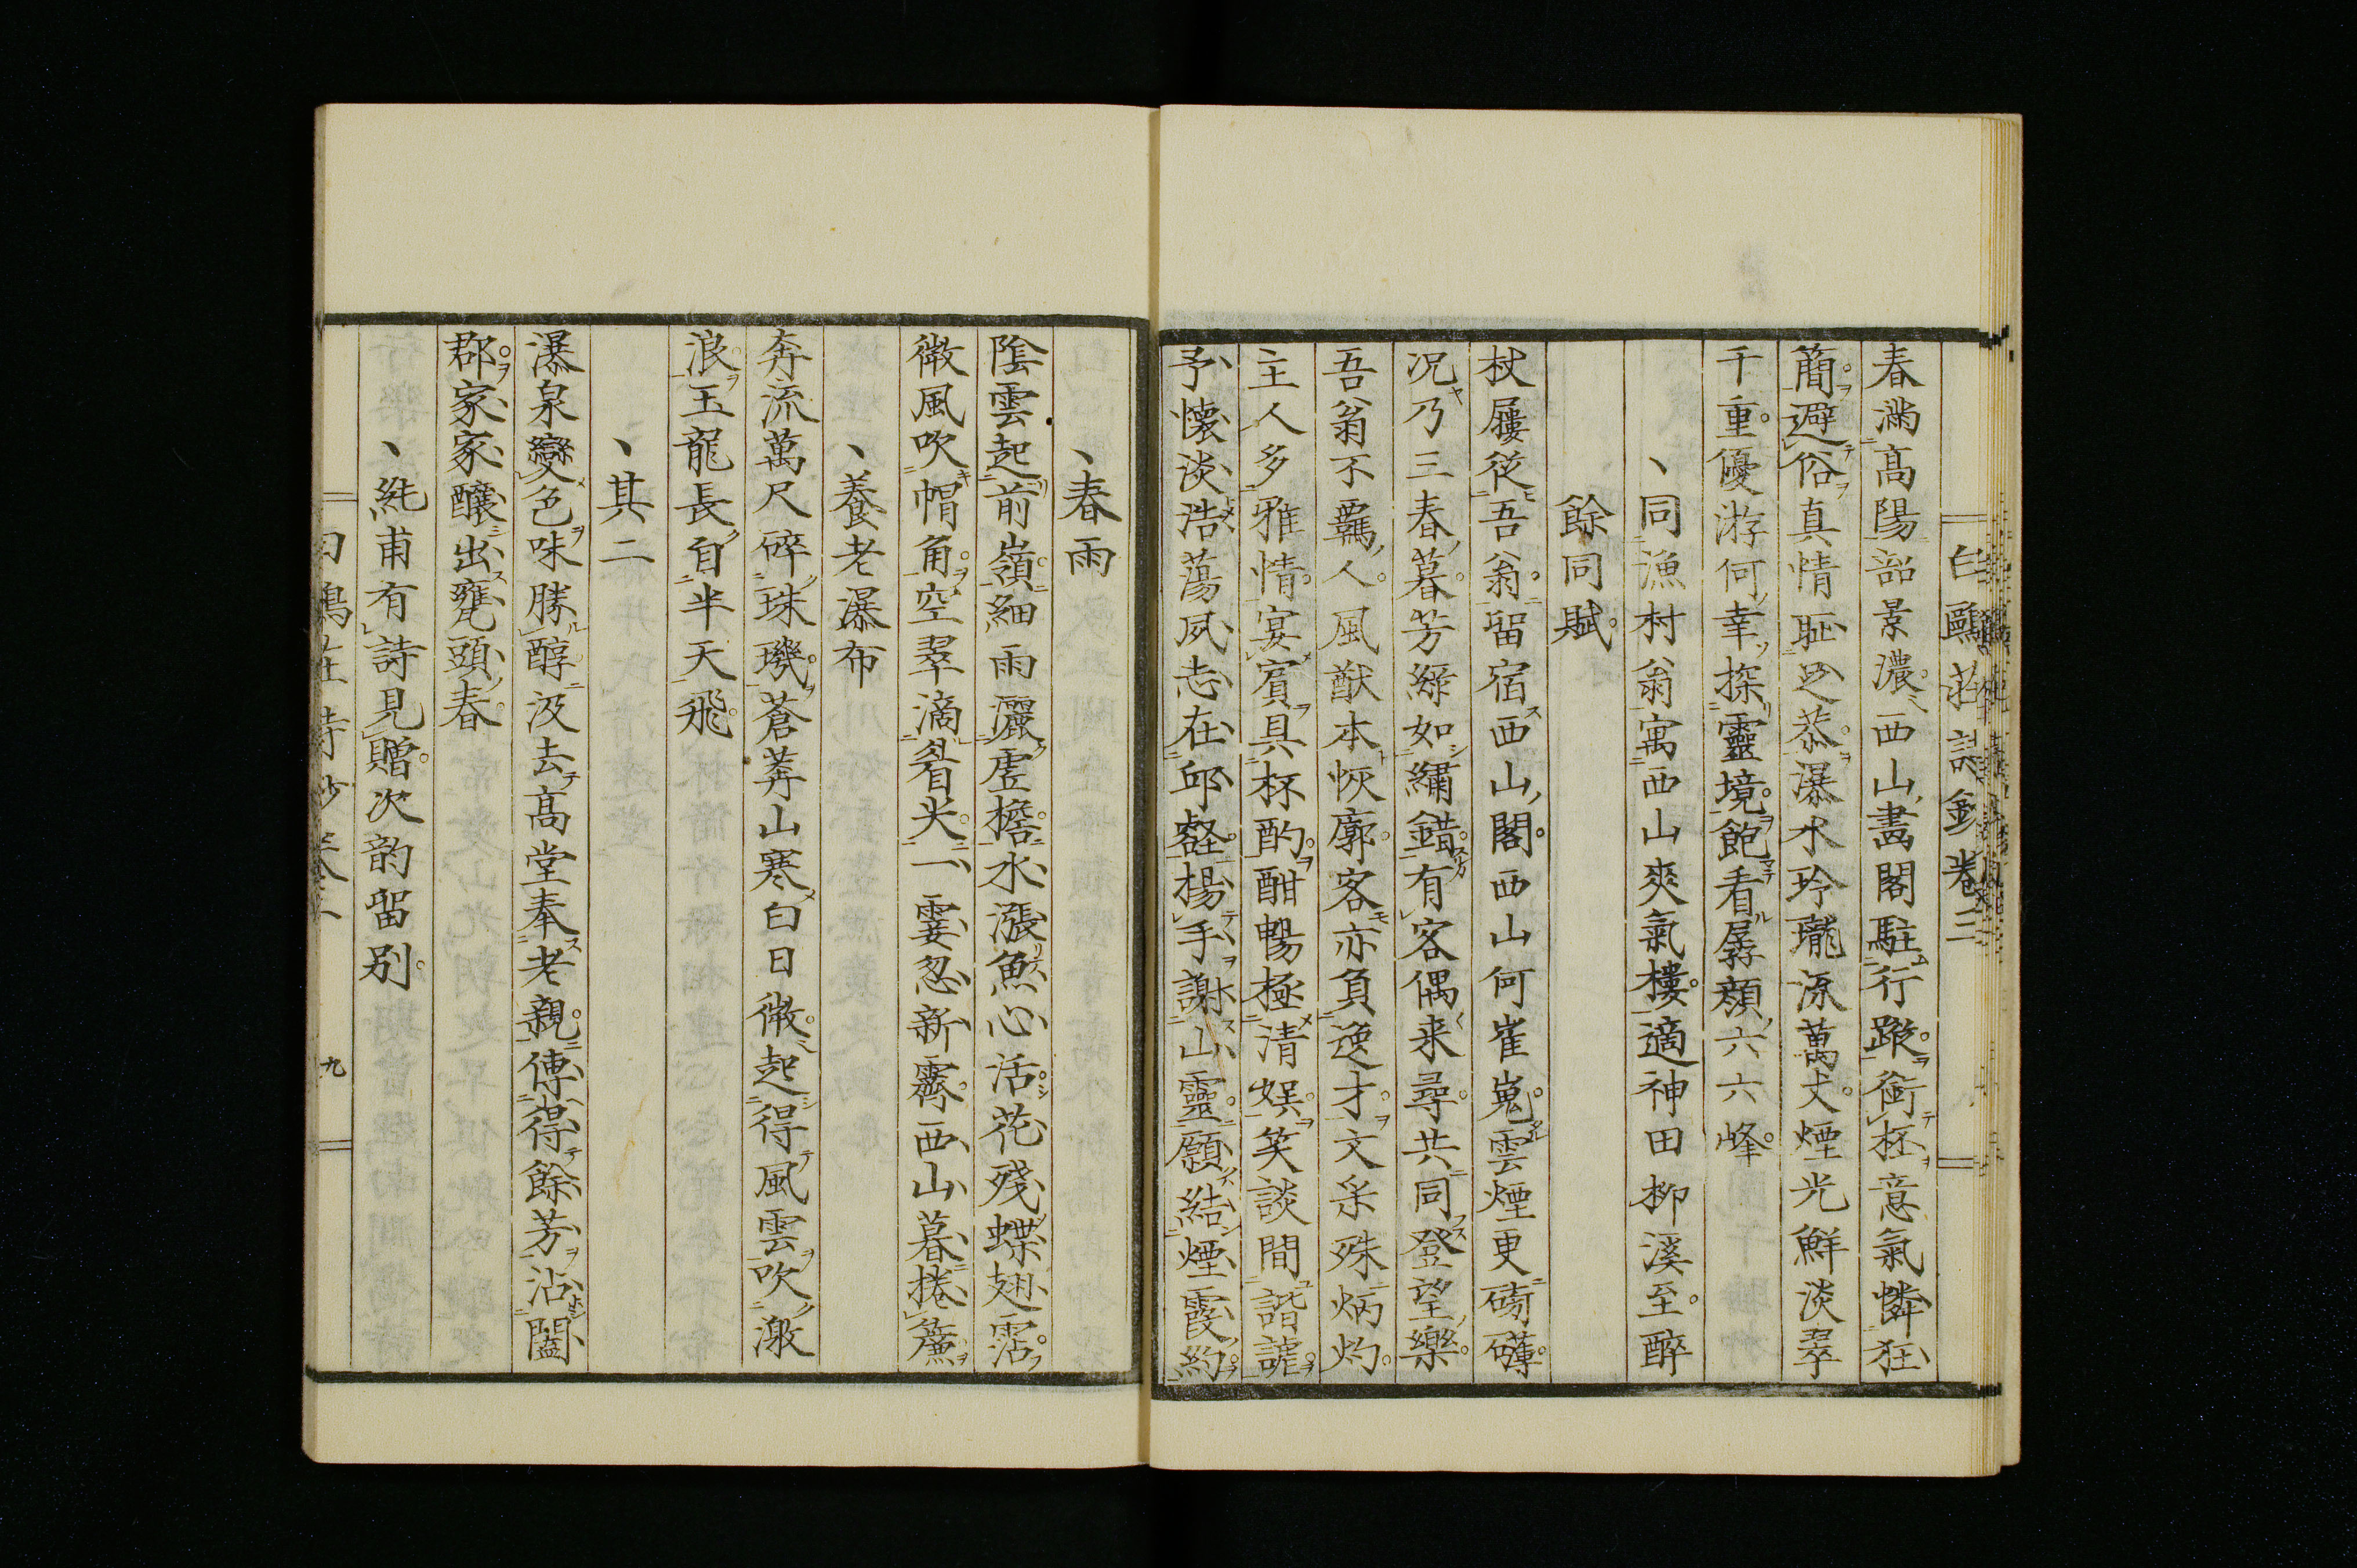 白鷗莊詩鈔卷三
春滿髙陽韶景濃西山畵閣駐行蹤銜杯意氣憐狂
簡避俗真情耻足恭瀑水玲瓏源萬丈煙光鮮淡翠
千重優游何幸探靈境飽看孱顔六六峰
同漁村翁寓西山爽氣樓適神田柳溪至醉
餘同賦
杖屨從吾翁留宿西山閣西山何崔嵬雲煙更磅礴
况乃三春暮芳緑如繍錯有客偶来尋共同登望樂
吾翁不羈人風猷本恢廓客亦負逸才文采殊炳灼
主人多雅情宴賓具杯酌酣暢極清娯笑談間諧謔
予懐淡浩蕩夙志在邱壑揚手謝山靈願結煙霞約
春雨
陰雲起前嶺細雨灑虚檐水漲魚心活花殘蝶翅霑
微風吹帽角空翠滴眉尖一霎忽新霽西山暮捲簾
養老瀑布
奔流萬尺碎珠璣蒼莽山寒白日微起得風雲吹激
浪玉龍長自半天飛
其二
瀑泉變色味勝醇汲去髙堂奉老親傳得餘芳沾闔
郡家家醸出甕頭春
純甫有詩見贈次韵留别
九